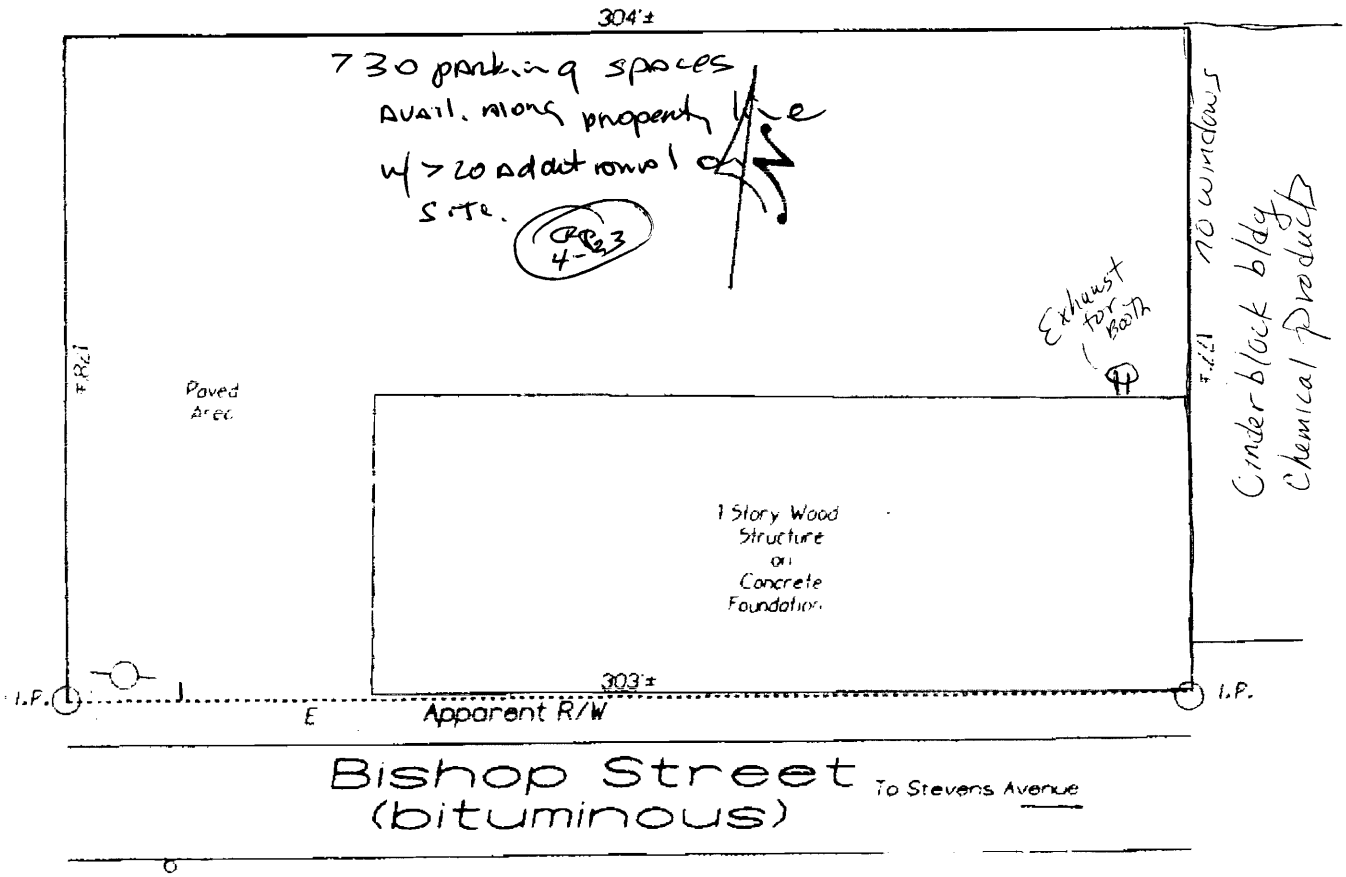 304'±
> 30 parking spaces
Avail. along property line
w/ > 20 additional on
site.
4-23
N
no windows
Cinderblock bldg
Chemical products
Exhaust
for
Booth
178'±
177'±
Paved
Area
1 Story Wood
Structure
on
Concrete
Foundation
303'±
I.P.
I.P.
E
Apparent R/W
Bishop Street
To Stevens Avenue
(bituminous)